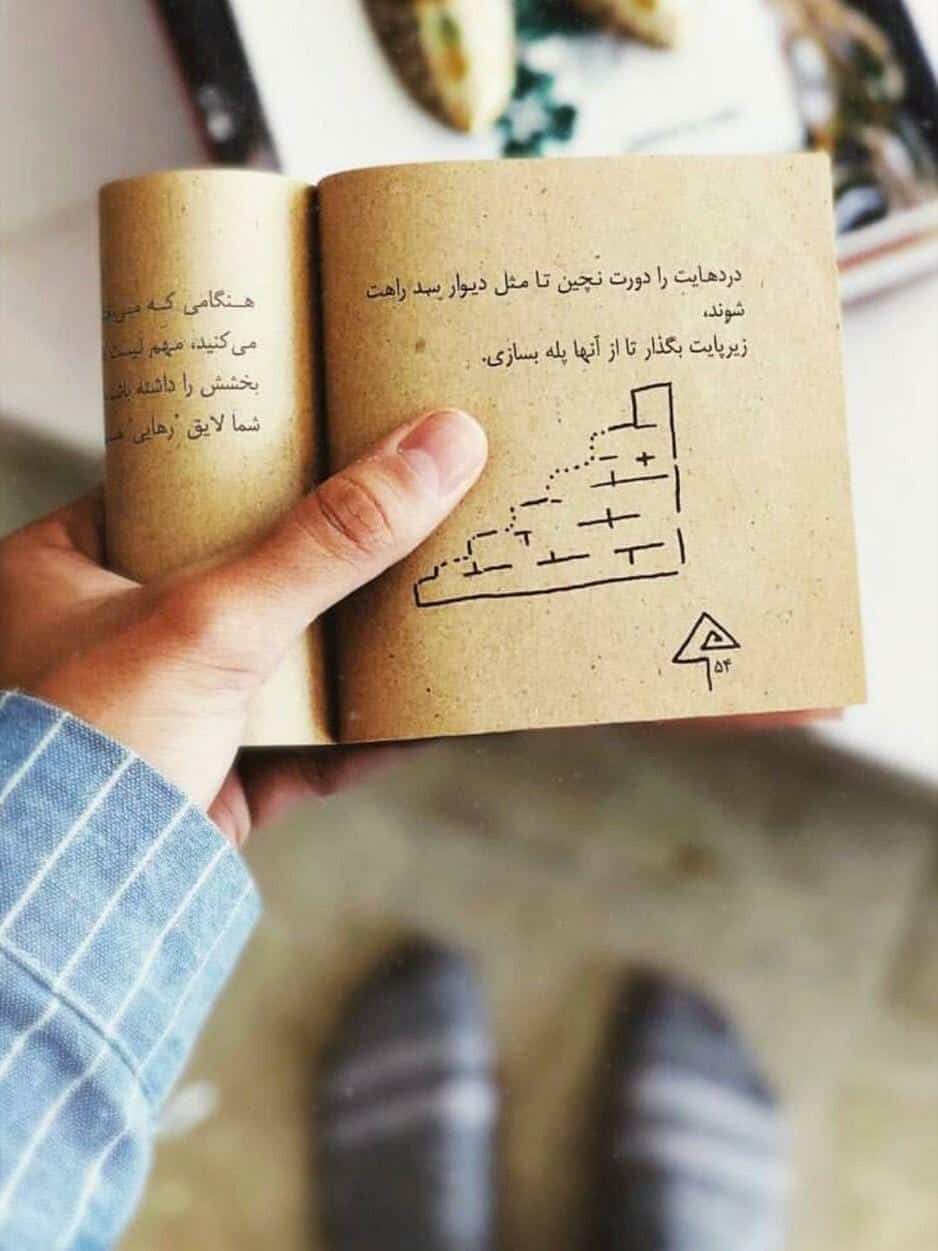 دردهایت را دورت نچین تا مثل دیوار سد راهت
شوند،
زیرپایت بگذار تا از آنها پله بسازی.
۵۴
هنگامی که
می‌کنید، مهم نیست
بخشش را داشته
شما لایق "رهایی"